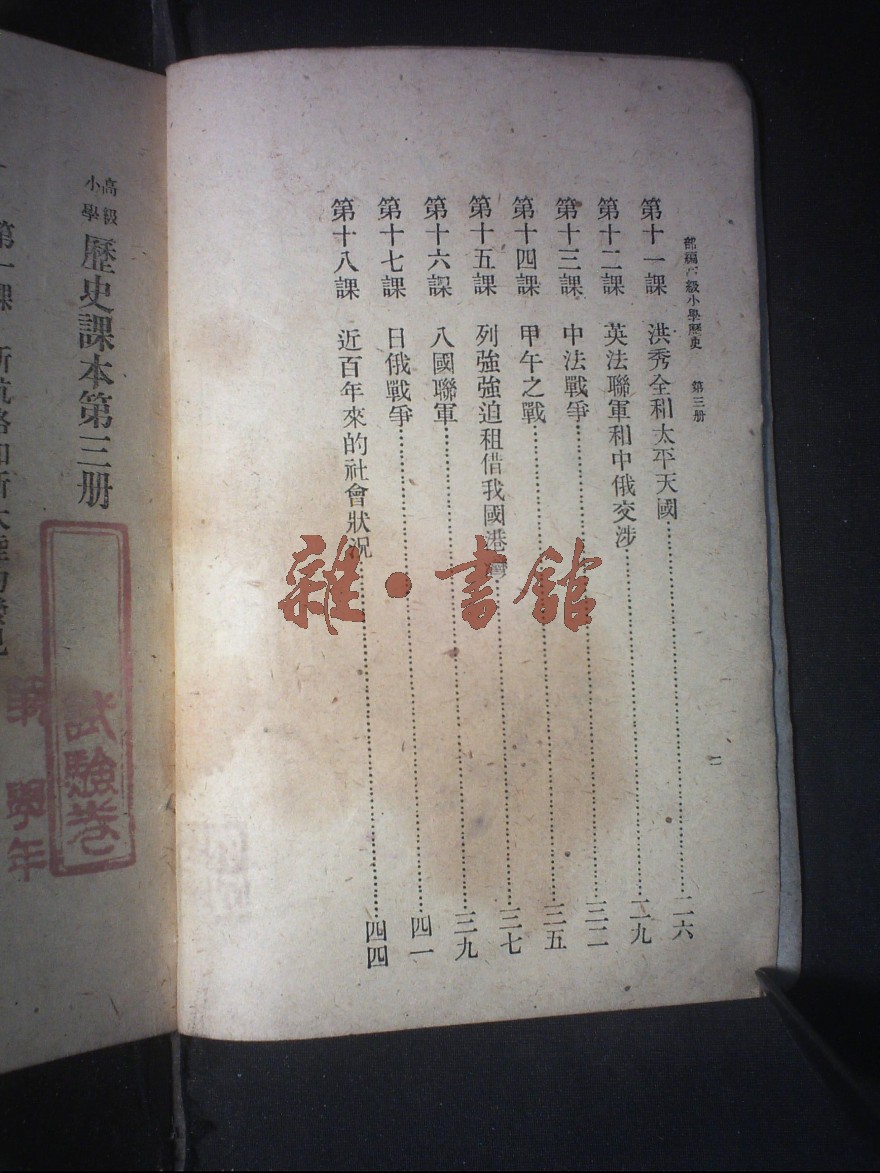 部編高級小學歷史 第三册
第十一課 洪秀全和太平天國 二六
第十二課 英法聯軍和中俄交涉 二九
第十三課 中法戰爭 三二
第十四課 甲午之戰 三五
第十五課 列強強迫租借我國港灣 三七
第十六課 八國聯軍 三九
第十七課 日俄戰爭 四一
第十八課 近百年來的社會狀況 四四
二
雜·書館
高級小學 歷史課本第三册
第一課 新航路和新大陸的發現
試驗卷
學年